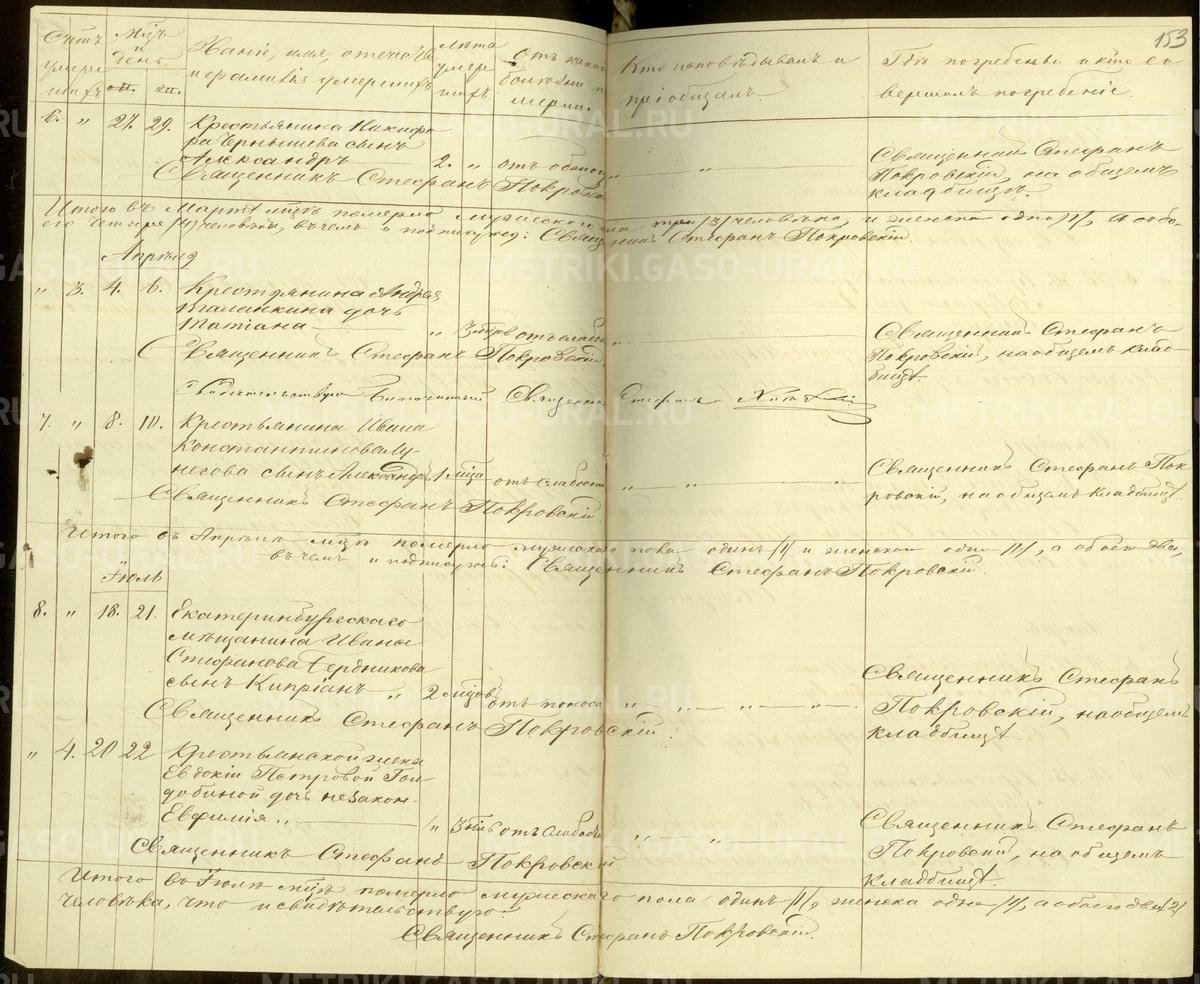 153
Счетъ умершихъ
Мѣсяцъ и день
Званіе, имя, отчество и фамилія умершихъ
Лѣта умершихъ
Отъ какой болѣзни померли.
Кто исповѣдывалъ и пріобщалъ.
Гдѣ погребены и кто совершалъ погребеніе.
6. „ 27. 29. Крестьянина Никифо
ра Чернышева сынъ
Александръ 2. „ отъ
„ „
Священникъ Стефанъ
Покровскій, на общемъ
кладбищѣ.
Священникъ Стефанъ Покровскій
Итого въ Мартѣ м-цѣ померло мужескаго пола три /3/ человѣка, и женска одна /1/, а обо-
его четыре /4/ человѣка, въ чемъ и подписуюсь: Священникъ Стефанъ Покровскій.
Апрѣля
„ 3. 4. 6. Крестьянина Андрея
Таланкина дочь
Татіана „ 3 отъ слабо
Священникъ Стефанъ
Покровскій, на общемъ клад-
бищѣ.
Священникъ Стефанъ Покровскій.
Свидѣтельствую Благочинный Священникъ Стефанъ
7. „ 8. 10. Крестьянина Ивана
Константинова Лу-
негова сынъ Александръ 1 м-ца отъ слабости
„ „ „
Священникъ Стефанъ Пок-
ровскій, на общемъ кладбищѣ.
Священникъ Стефанъ Покровскій.
Итого въ Апрѣлѣ м-цѣ померло мужескаго пола одинъ /1/ и женска одна /1/, а обоего два,
въ чемъ и подписуюсь: Священникъ Стефанъ Покровскій.
Іюль
8. „ 18. 21. Екатеринбургскаго
мѣщанина Ивана
Стефанова Бердникова
сынъ Кипріанъ „ 2 м-цовъ отъ поноса
„ „ „ „
Священникъ Стефанъ
Покровскій, на общемъ
кладбищѣ.
Священникъ Стефанъ Покровскій.
„ 4. 20 22 Крестьянской жены
Евдокіи Петровой Гол-
добиной дочь незакон.
Евфимія „ 3 отъ слабо
„ „
Священникъ Стефанъ
Покровскій, на общемъ
кладбищѣ.
Священникъ Стефанъ Покровскій
Итого въ Іюлѣ м-цѣ померло мужескаго пола одинъ /1/, женска одна /1/, а обоего два /2/
человѣка, что и свидѣтельствую:
Священникъ Стефанъ Покровскій.
METRIKI.GASO-URAL.RU